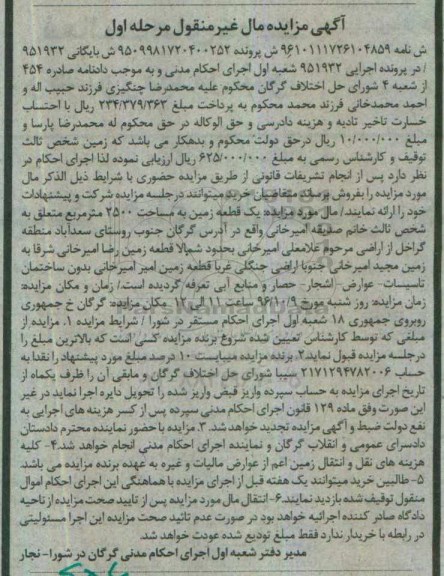 آگهی مزایده مال غیرمنقول مرحله اول
ش نامه ۹۶۱۰۱۱۱۷۲۶۱۰۴۸۵۹ ش پرونده ۹۵۰۹۹۸۱۷۲۰۴۰۰۲۵۲ ش بایگانی ۹۵۱۹۳۲
/ در پرونده اجرایی ۹۵۱۹۳۲ شعبه اول اجرای احکام مدنی و به موجب دادنامه صادره ۴۵۴
از شعبه ۴ شورای حل اختلاف گرگان محکوم علیه محمدرضا چنگیزی فرزند حبیب اله و
احمد محمدخانی فرزند محمد محکوم به پرداخت مبلغ ۲۳۴/۳۷۹/۳۶۳ ریال با احتساب
خسارت تاخیر تادیه و هزینه دادرسی و حق الوکاله در حق محکوم له محمدرضا پارسا و
مبلغ ۱۰/۰۰۰/۰۰۰ ریال درحق دولت محکوم و بدهکار می باشد که زمین شخص ثالث
توقیف و کارشناس رسمی به مبلغ ۶۲۵/۰۰۰/۰۰۰ ریال ارزیابی نموده لذا اجرای احکام در
نظر دارد پس از انجام تشریفات قانونی از طریق مزایده حضوری با شرایط ذیل الذکر مال
مورد مزایده را بفروش برساند متقاضیان خرید میتوانند درجلسه مزایده شرکت و پیشنهادات
خود را ارائه نمایند/ مال مورد مزایده: یک قطعه زمین به مساحت ۲۵۰۰ مترمربع متعلق به
شخص ثالث خانم صدیقه امیرخانی واقع در آدرس گرگان جنوب روستای سعدآباد منطقه
گراخل از اراضی مرحوم غلامعلی امیرخانی بحدود شمالا قطعه زمین رضا امیرخانی شرقا به
زمین مجید امیرخانی جنوبا اراضی جنگلی غربا قطعه زمین امیر امیرخانی بدون ساختمان
تاسیسات- عوارض- اشجار- حصار و منابع آبی تعرفه گردیده است./ زمان و مکان مزایده:
زمان مزایده: روز شنبه مورخ ۹۶/۱۰/۹ ساعت ۱۱ الی ۱۲ مکان مزایده: گرگان خ جمهوری
روبروی جمهوری ۱۸ شعبه اول اجرای احکام مستقر در شورا / شرایط مزایده ۱. مزایده از
مبلغی که توسط کارشناس تعیین شده شروع برنده مزایده کسی است که بالاترین مبلغ را
درجلسه مزایده قبول نماید۲. برنده مزایده میبایست ۱۰ درصد مبلغ مورد پیشنهاد را نقدا به
حساب ۲۱۷۱۲۹۴۷۸۲۰۰۶ سیبا شورای حل اختلاف گرگان و مابقی آن را ظرف یکماه از
تاریخ اجرای مزایده به حساب سپرده واریز قبض واریز شده را تحویل دایره اجرا نماید در غیر
این صورت وفق ماده ۱۲۹ قانون اجرای احکام مدنی سپرده پس از کسر هزینه های اجرایی به
نفع دولت ضبط و آگهی مزایده تجدید خواهد شد. ۳. مزایده با حضور نماینده محترم دادستان
دادسرای عمومی و انقلاب گرگان و نماینده اجرای احکام مدنی انجام خواهد شد.۴- کلیه
هزینه های نقل و انتقال زمین اعم از عوارض مالیات و غیره به عهده برنده مزایده می باشد.
۵-طالبین خرید میتوانند یک هفته قبل از اجرای مزایده با هماهنگی این اجرای احکام اموال
منقول توقیف شده بازدید نمایند.۶-انتقال مال مورد مزایده پس از تایید صحت مزایده از ناحیه
دادگاه صادر کننده اجرائیه خواهد بود در صورت عدم تائید صحت مزایده این اجرا مسئولیتی
در رابطه با خریدار ندارد فقط مبلغ تودیع شده عودت خواهد شد.
مدیر دفتر شعبه اول اجرای احکام مدنی گرگان در شورا- نجار